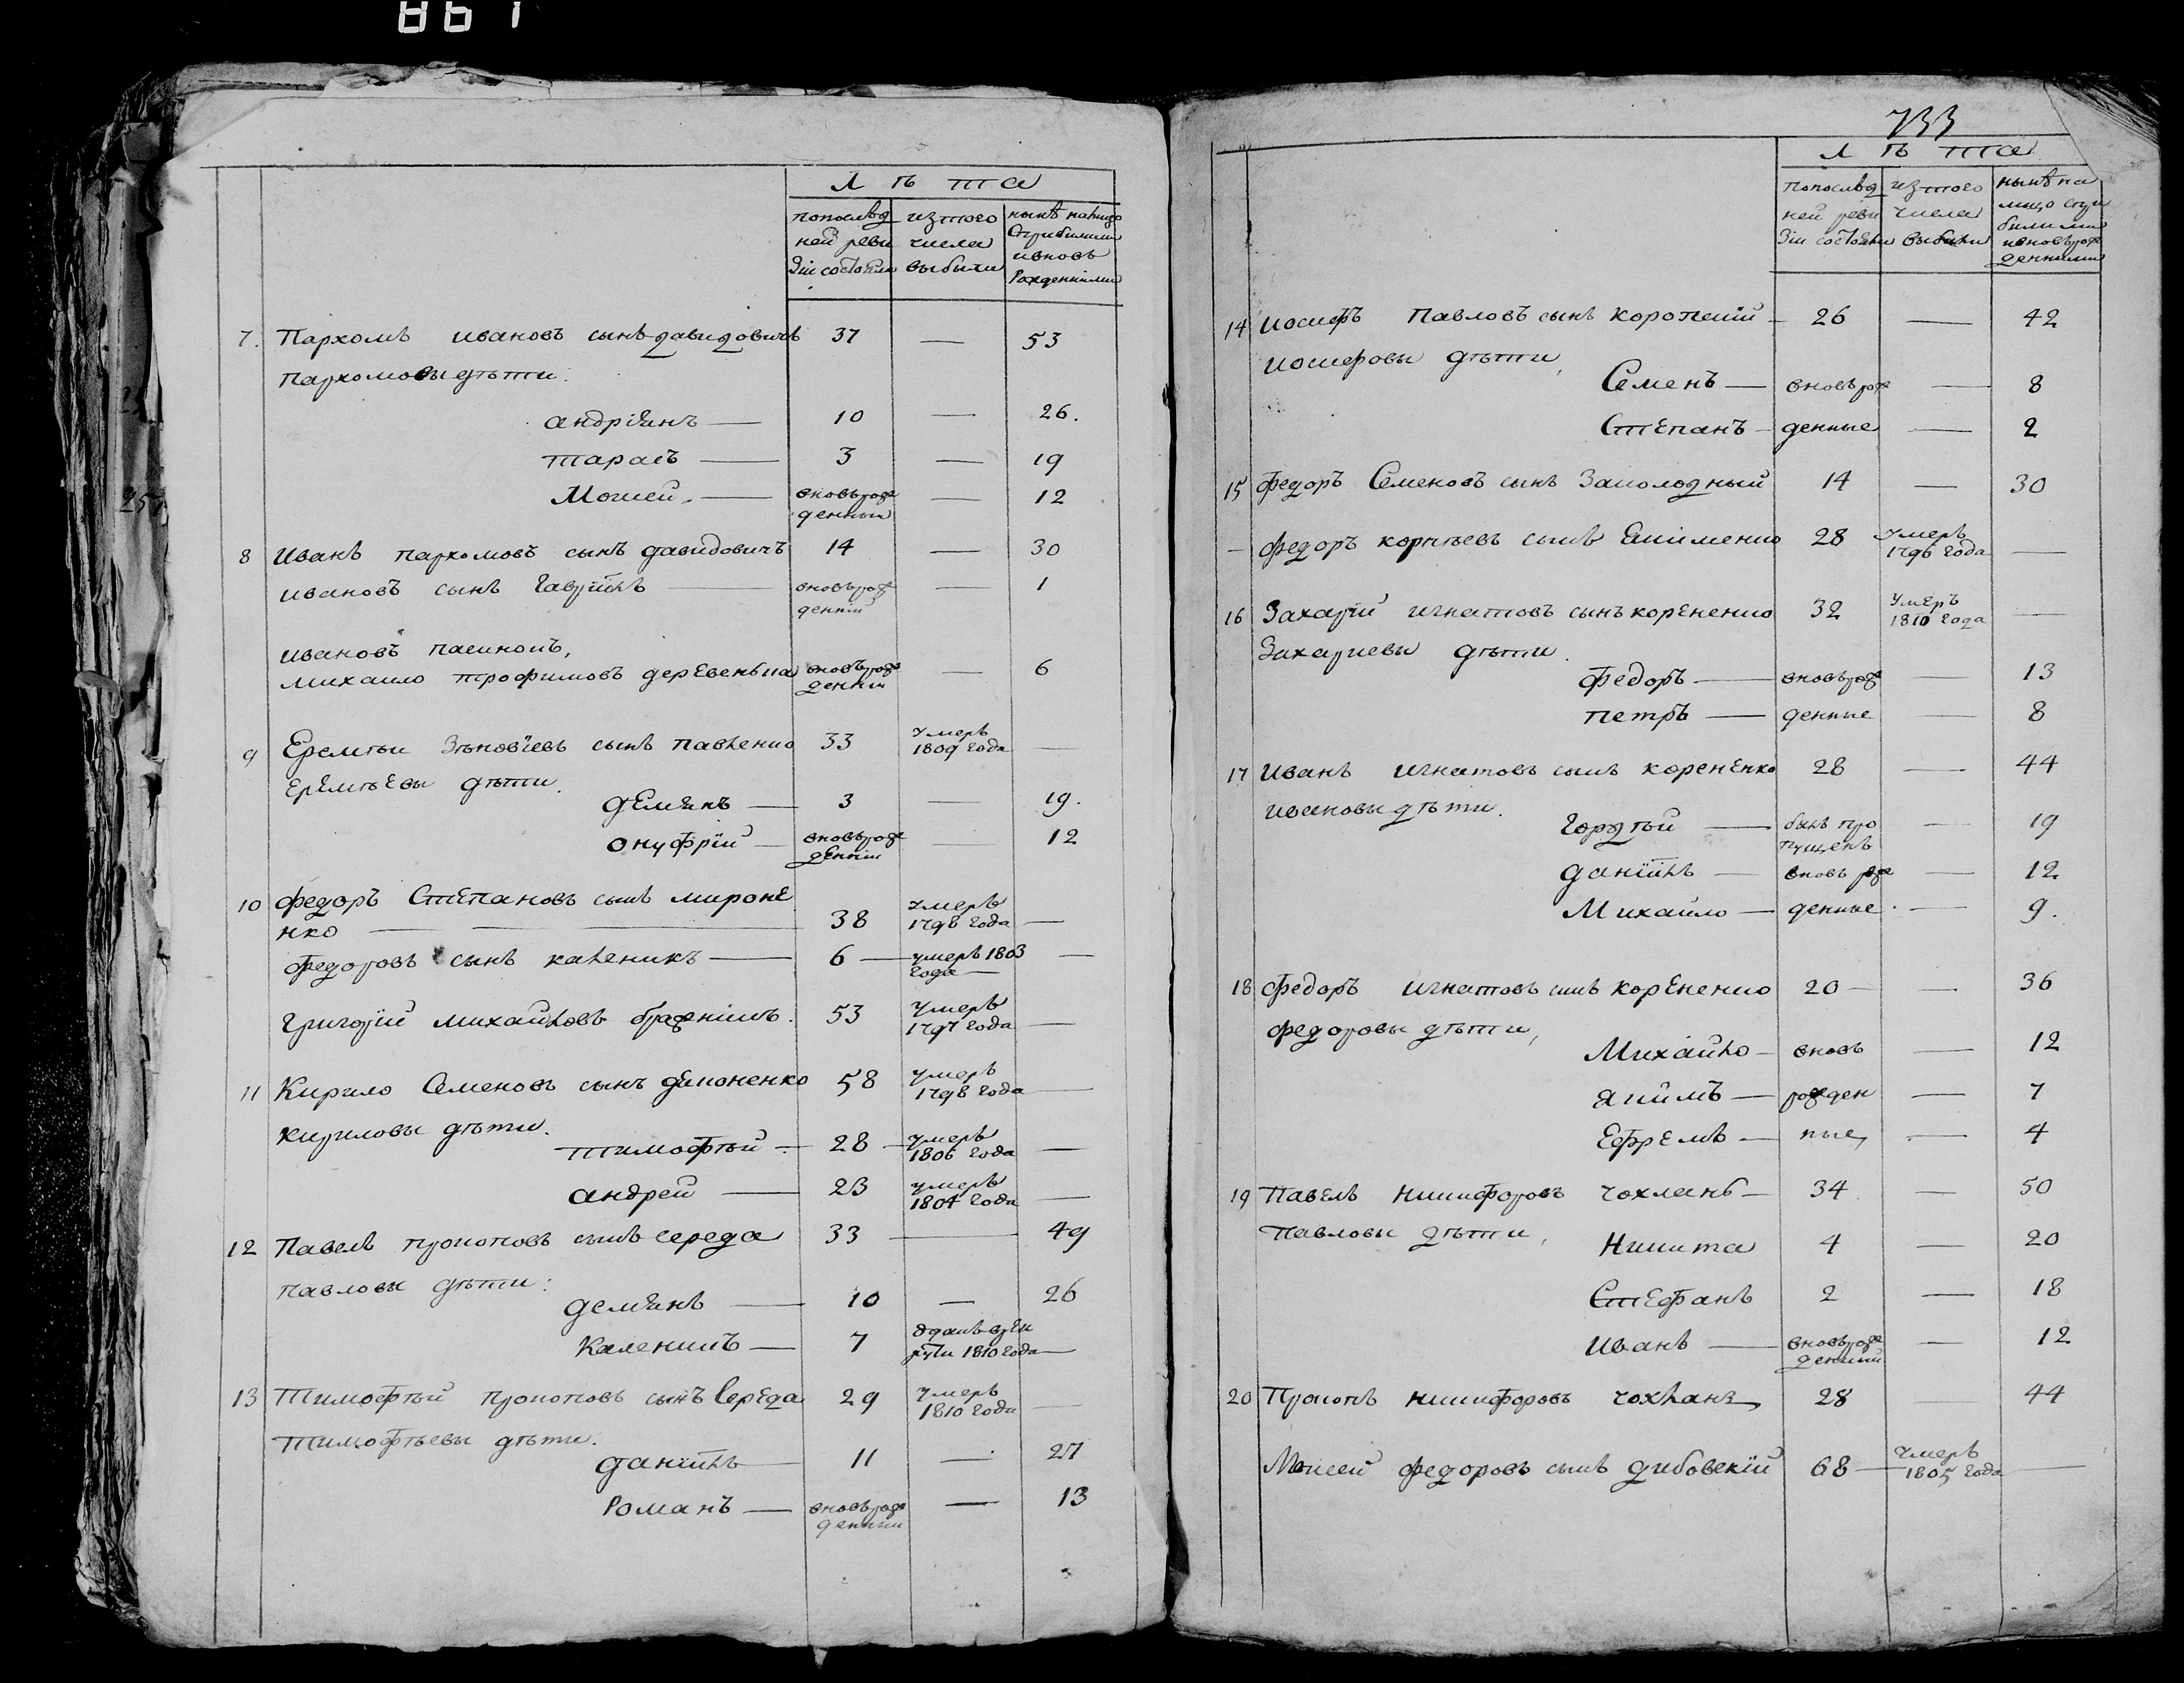 861
Лѣта
по последней ревизіи состояли | изъ того числа выбыли | нынѣ на лицо съ прибылыми и вновь рожденными
7. Пархомъ Ивановъ сынъ Давидовичъ 37 — 53
Пархомовы дѣти:
Андріянъ — 10 — 26.
Тарасъ — 3 — 19
Мойсей — вновь рожденный — 12
8 Иванъ Пархомовъ сынъ Давидовичъ 14 — 30
Ивановъ сынъ Гаврійлъ — вновь рожденній — 1
Ивановъ пасинокъ,
Михайло Трофимовъ вновь рожденній — 6
9 Еремѣй Зѣновіевъ сынъ Павленко 33 умеръ 1809 года —
Еремѣевы дѣти.
Демянъ — 3 — 19.
Онуфрій — вновь рожденній — 12
10 Федоръ Степановъ сынъ Мироне
нко — 38 умеръ 1798 года —
Федоровъ сынъ Каленикъ — 6 — умеръ 1803 года — —
Григорій Михайловъ 53 умеръ 1797 года —
11 Кирило Семеновъ сынъ 58 умеръ 1798 года —
Кириловы дѣти.
Тимофѣй — 28 — умеръ 1806 года —
Андрей — 23 умеръ 1804 года —
12 Павелъ Прокоповъ сынъ Середа 33 — 49
Павловы дѣти:
Демянъ — 10 — 26
Каленикъ — 7 отданъ в рекруты 1810 года —
13 Тимофѣй Прокоповъ сынъ Середа 29 умеръ 1810 года —
Тимофѣевы дѣти:
Данійлъ — 11 — 27
Романъ — вновь рожденній — 13
733
Лѣта
по последней ревизіи состояли | изъ того числа выбыли | нынѣ на лицо съ прибылыми и вновь рожденными
14 Иосифъ Павловъ сынъ — 26 — 42
Иосифовы дѣти,
Семенъ — вновь рож — 8
Степанъ — денные — 2
15 Федоръ Семеновъ сынъ 14 — 30
— Федоръ Корнѣевъ сынъ 28 умеръ 1796 года —
16 Захарій Игнатовъ сынъ Корененко 32 умеръ 1810 года —
Захариевы дѣти.
Федоръ — вновь рож — 13
Петръ — денные — 8
17 Иванъ Игнатовъ сынъ Корененко 28 — 44
Ивановы дѣти.
Гордѣй — былъ пропущенъ — 19
Данійлъ — вновь рож — 12
Михайло — денные — 9.
18 Федоръ Игнатовъ сынъ Корененко 20 — — 36
Федоровы дѣти,
Михайло — вновь — 12
Якимъ — рожден — 7
Ефремъ — ные, — 4
19 Павелъ Никифоровъ Чохланъ — 34 — 50
Павловы дѣти,
Никита 4 — 20
Стефанъ 2 — 18
Иванъ — вновь рожденній — 12
20 Прокопъ Никифоровъ Чохланъ, 28 — 44
Моисей Федоровъ сынъ Дибовскій 68 — умеръ 1805 года —